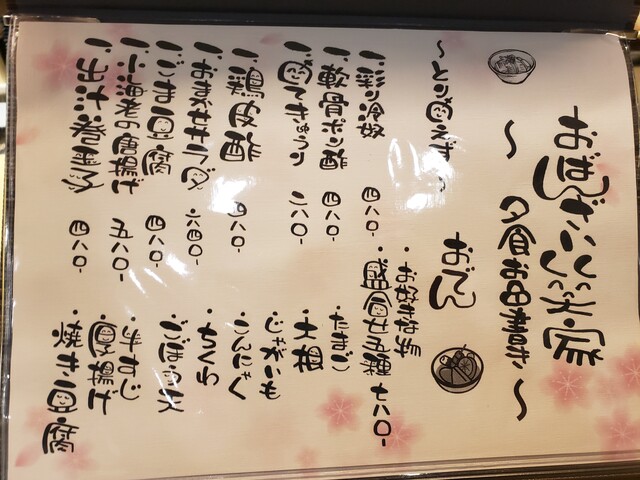 おばんざい笑家
〜夕食お品書き〜
〜とりあえず〜
一、彩り冷奴 四八〇-
一、軟骨ポン酢 四八〇-
一、あてきゅうり 二八〇-
一、鶏皮酢 四八〇-
一、おまかせサラダ 六四〇-
一、ごま豆腐 四八〇-
一、小海老の唐揚げ 五八〇-
一、出汁巻玉子 四八〇-
おでん
・お好きな
・盛合せ五種 七八〇-
・たまご
・大根
・じゃがいも
・こんにゃく
・ちくわ
・ごぼう天
・牛すじ
・厚揚げ
・焼き豆腐